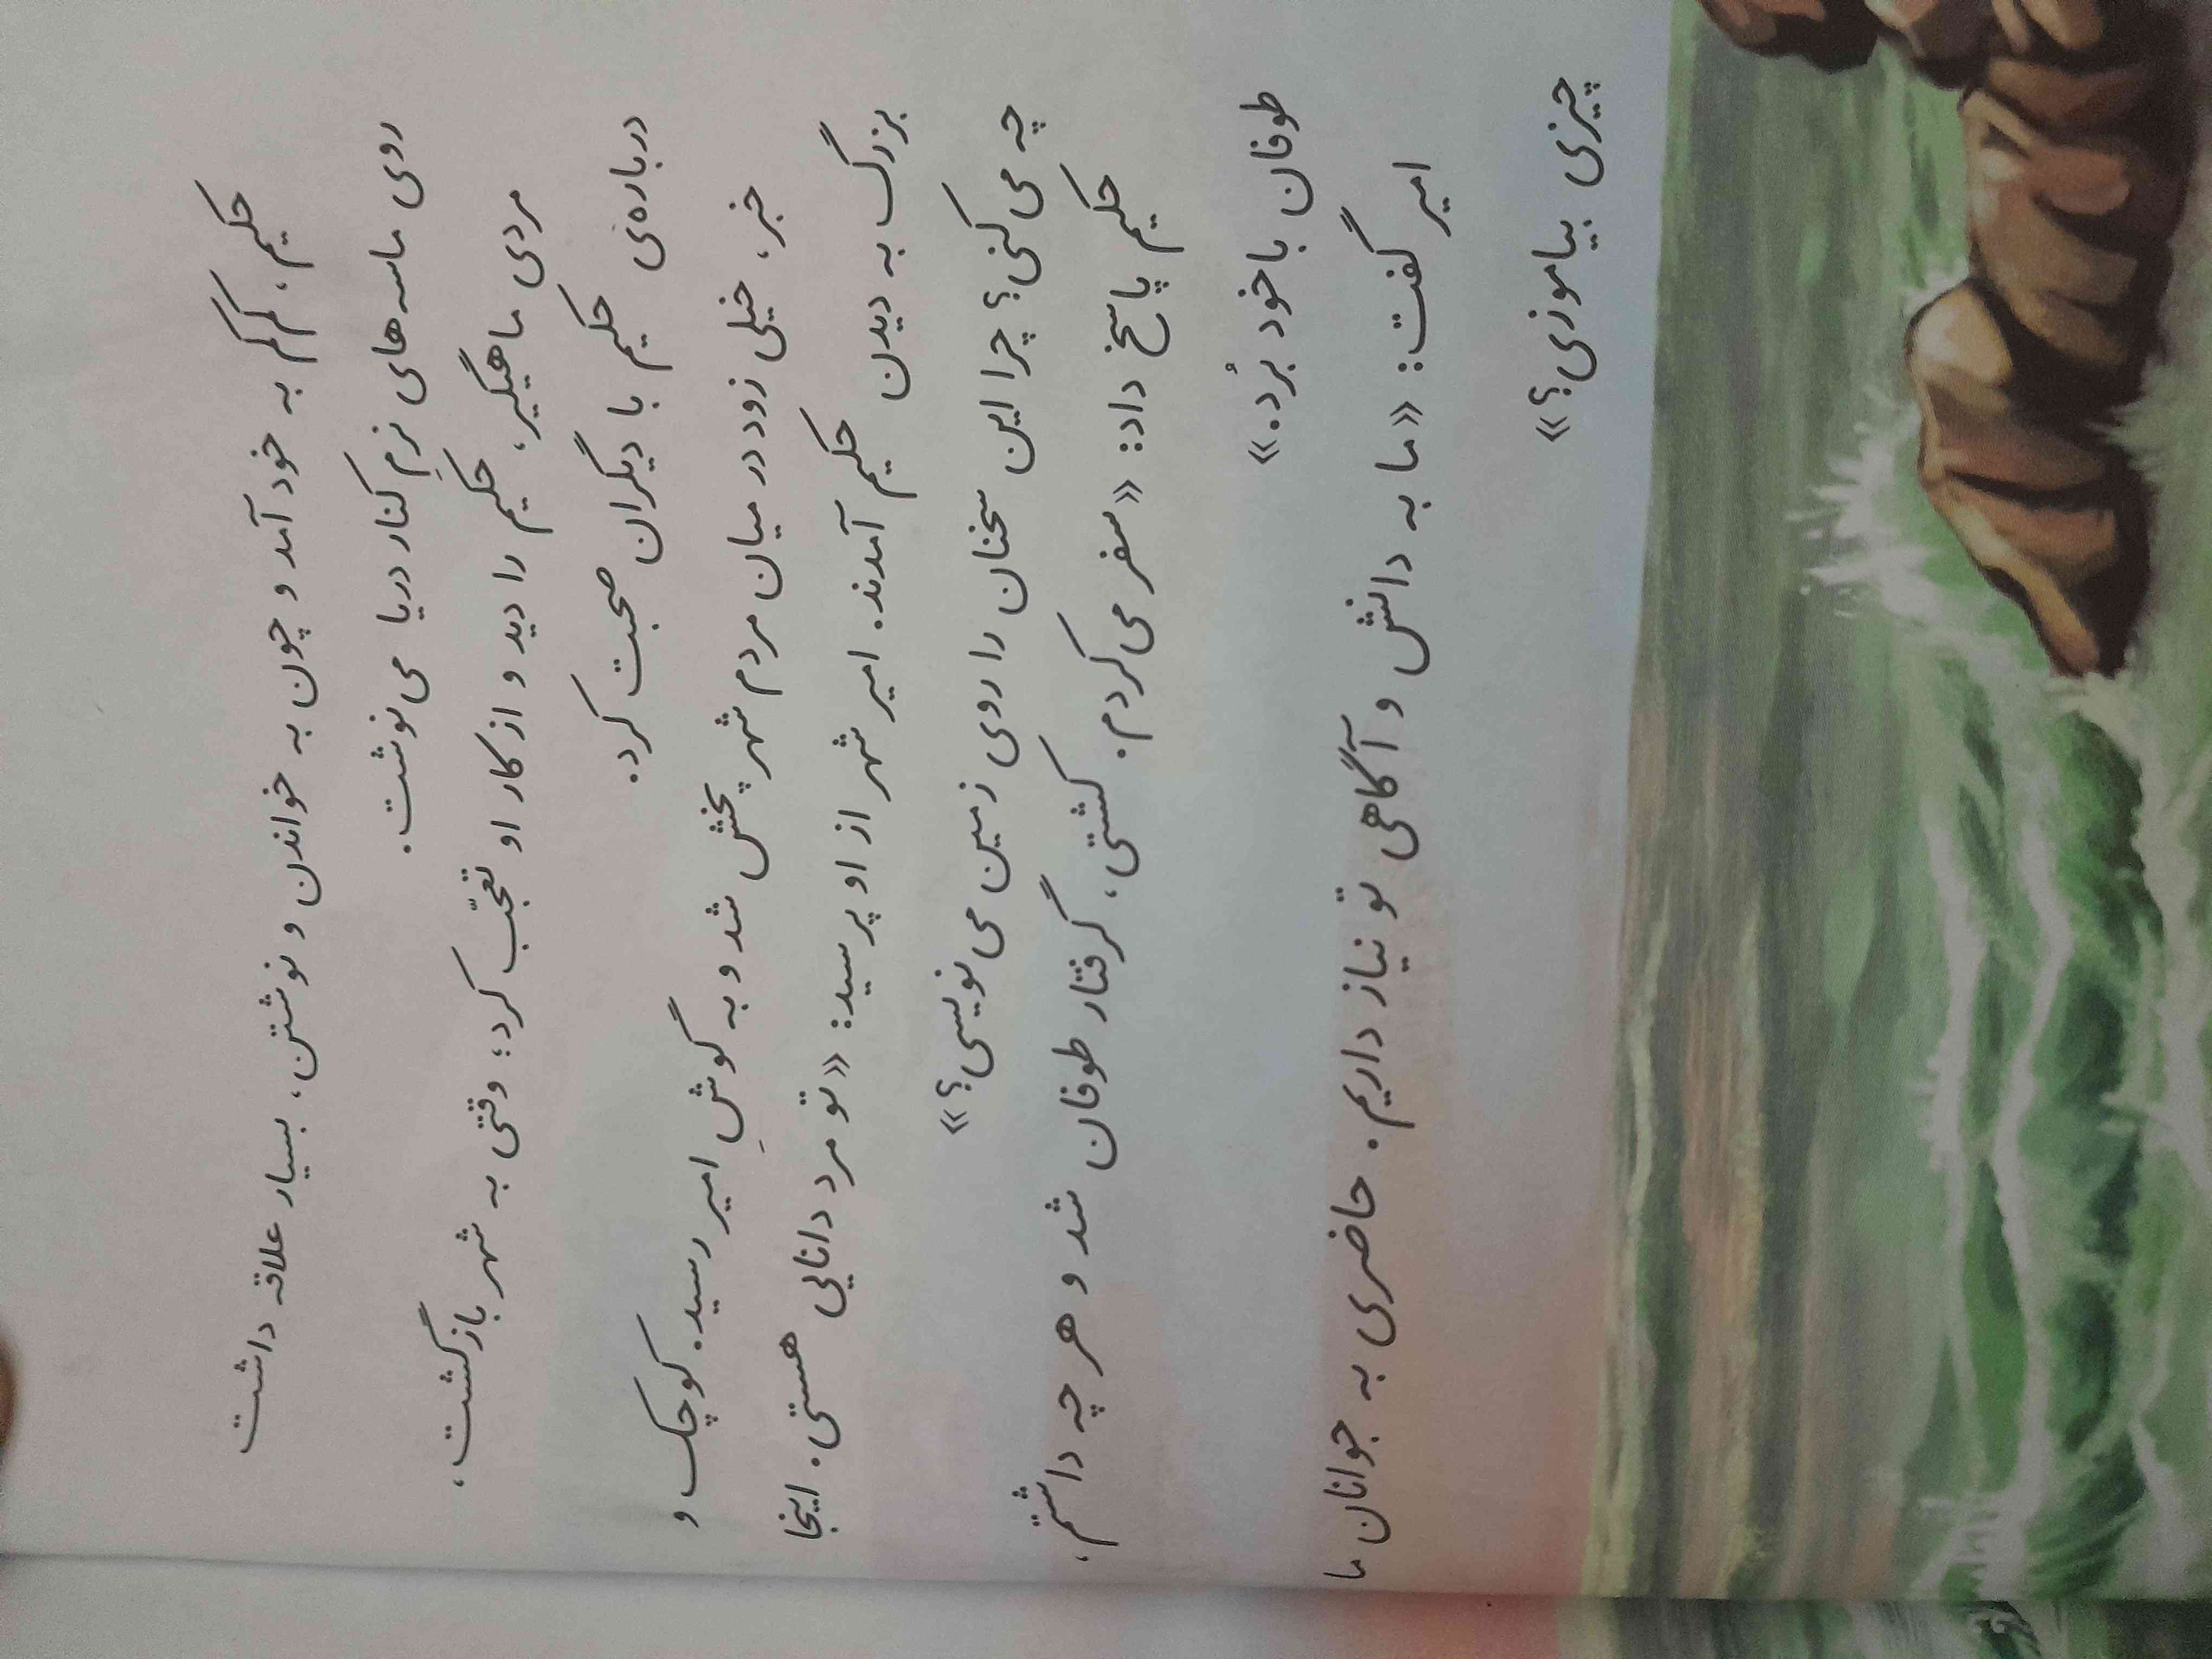 حکیم، کم‌کم به خود آمد و چون به خواندن و نوشتن، بسیار علاقه داشت
روی ماسه‌های نرمِ کنار دریا می‌نوشت.
مردی ماهیگیر، حکیم را دید و از کار او تعجّب کرد؛ وقتی به شهر بازگشت،
درباره‌ی حکیم با دیگران صحبت کرد.
خبر، خیلی زود در میان مردم شهر پخش شد و به گوشِ امیر رسید. کوچک و
بزرگ به دیدن حکیم آمدند. امیر شهر از او پرسید: «تو مرد دانایی هستی. اینجا
چه می‌کنی؟ چرا این سخنان را روی زمین می‌نویسی؟»
حکیم پاسخ داد: «سفر می‌کردم. کشتی، گرفتار طوفان شد و هر چه داشتم،
طوفان با خود بُرد.»
امیر گفت: «ما به دانش و آگاهی تو نیاز داریم. حاضری به جوانان ما
چیزی بیاموزی؟»